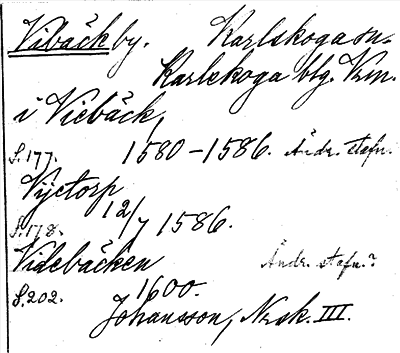 Vibäck by. Karlskoga sn.
Karlskoga blg. Vrm.
i Viebäck,
S.177. 1580-1586. Ändr. stafn.
Vijetorp
S.178. 12/7 1586.
Videbäcken Ändr. stafn?
S.202. 1600.
Johansson, Nrsk. III.